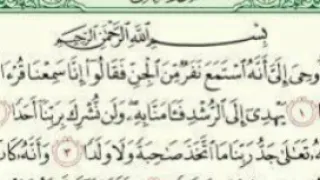 بِسْمِ اللَّهِ الرَّحْمَٰنِ الرَّحِيمِ
أُوحِىَ إِلَىَّ أَنَّهُ ٱسْتَمَعَ نَفَرٌ مِّنَ ٱلْجِنِّ فَقَالُوٓا۟ إِنَّا سَمِعْنَا قُرْءَا
١ يَهْدِىٓ إِلَى ٱلرُّشْدِ فَـَٔامَنَّا بِهِۦ وَلَن نُّشْرِكَ بِرَبِّنَآ أَحَدًا
تَعَٰلَىٰ جَدُّ رَبِّنَا مَا ٱتَّخَذَ صَٰحِبَةً وَلَا وَلَدًا ٣ وَأَنَّهُۥ كَانَ